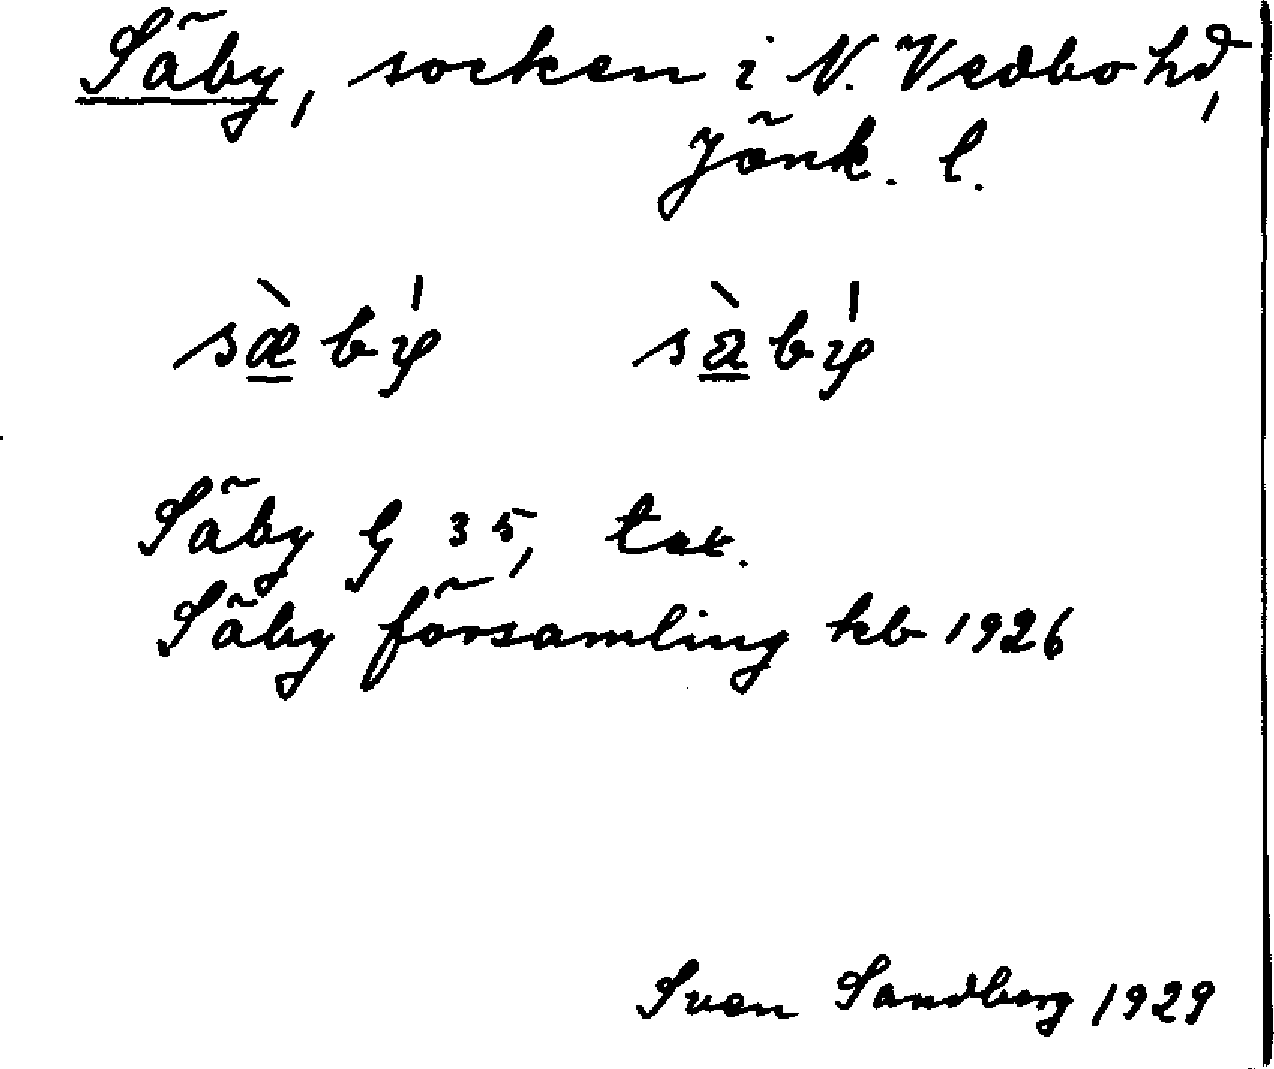 Säby, socken i N. Vedbo hd,
Jönk. l.
sæ̀bý sàbý
Säby G 35, tax.
Säby församling kb 1926
Sven Sandberg 1929